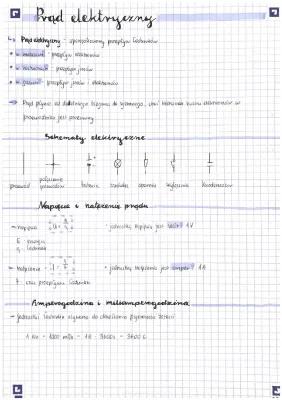 Prąd elektryczny
↳ Prąd elektryczny - uporządkowany przepływ ładunków
• w metalach - przepływ elektronów
• w roztworach - przepływ jonów
• w gazach - przepływ jonów i elektronów
→ Prąd płynie od dodatniego bieguna do ujemnego, choć kierunek ruchu elektronów w
przewodniku jest przeciwny
Schematy elektryczne
przewód połączenie przewodów bateria żarówka opornik wyłącznik kondensator
Napięcie i natężenie prądu
→ napięcie • jednostką napięcia jest volt 1V
q ładunek
→ natężenie • jednostką natężenia jest amper 1A
t czas przepływu ładunku
Amperogodzina i miliamperogodzina
→ jednostki ładunku używane do określania
1 Ah = 1000 mAh = 1A · 3600s = 3600 C